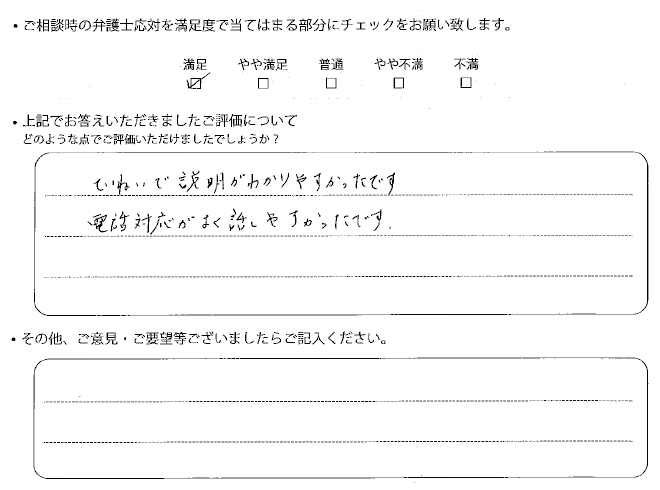 ・ご相談時の弁護士応対を満足度で当てはまる部分にチェックをお願い致します。
満足 やや満足 普通 やや不満 不満
☑ □ □ □ □
・上記でお答えいただきましたご評価について
どのような点でご評価いただけましたでしょうか？
ていねいで説明がわかりやすかったです
電話対応がよく話しやすかったです.
・その他、ご意見・ご要望等ございましたらご記入ください。